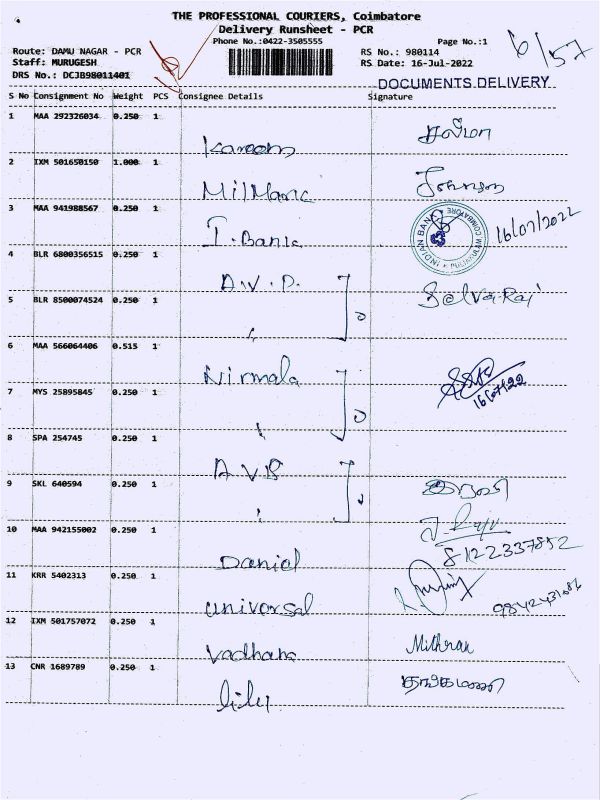 THE PROFESSIONAL COURIERS, Coimbatore
Delivery Runsheet - PCR
Phone No.:0422-3505555
Page No.:1
6/57
Route: DAMU NAGAR - PCR
RS No.: 980114
Staff: MURUGESH
RS Date: 16-Jul-2022
DRS No.: DCJB98011401
DOCUMENTS DELIVERY
S No Consignment No Weight PCS Consignee Details Signature
1 MAA 292326034 0.250 1
Kareem சலீமா
2 IXM 501650150 1.000 1
MilManc Johnson
3 MAA 941988567 0.250 1
I. Bank INDIAN BANK COIMBATORE 16/07/2022
4 BLR 6800356515 0.250 1
A.V.P.
5 BLR 8500074524 0.250 1
Selva Raj
6 MAA 566064406 0.515 1
Nirmala
7 MYS 25895845 0.250 1
16/07/22
8 SPA 254745 0.250 1
A.V.P
9 SKL 640594 0.250 1
10 MAA 942155002 0.250 1
Daniel J. Raju
8122337892
11 KRR 5402313 0.250 1
Universal
12 IXM 501757072 0.250 1
Vadhana Mithran
13 CNR 1689789 0.250 1
lily தங்கமணி